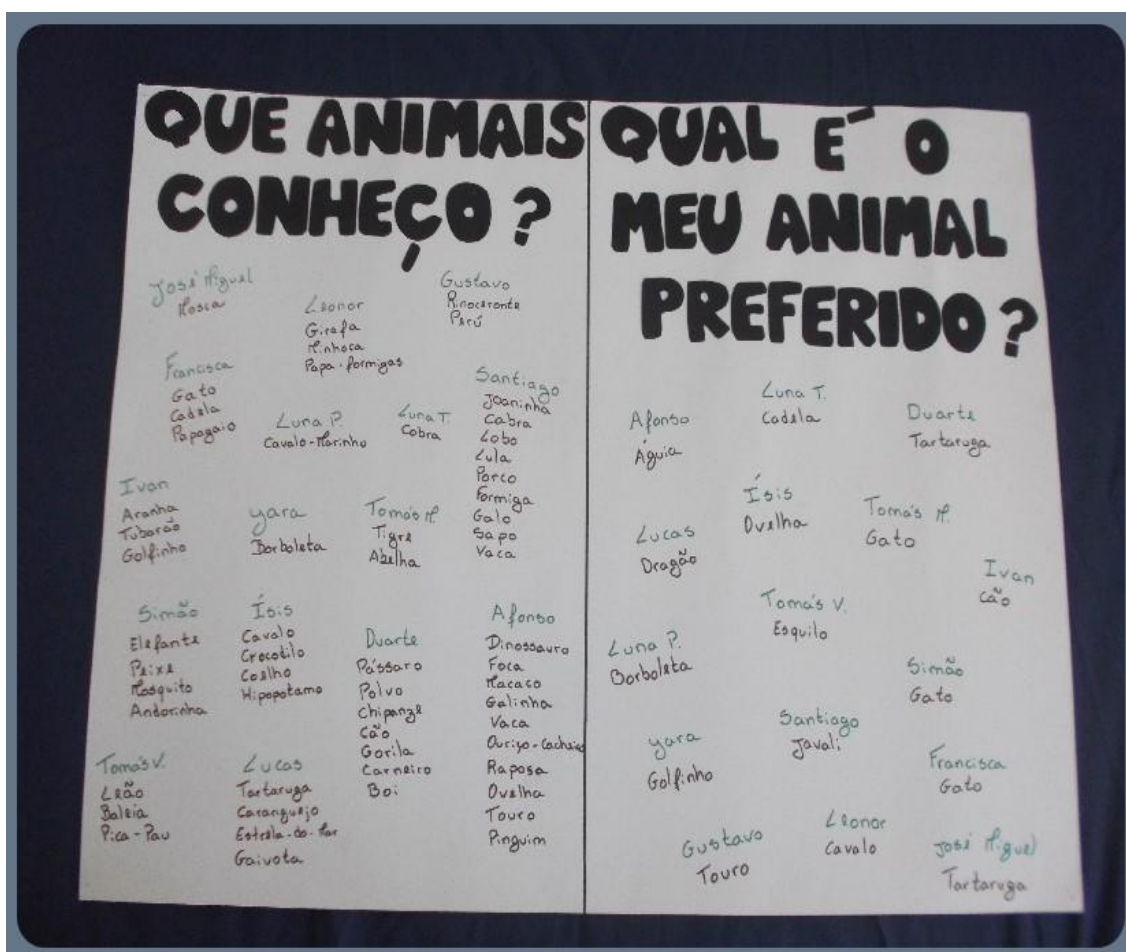 QUE ANIMAIS
CONHEÇO?
José Miguel
Mosca
Leonor
Girafa
Minhoca
Papa-formigas
Gustavo
Rinoceronte
Perú
Francisca
Gato
Cadela
Papagaio
Luna P.
Cavalo-Marinho
Luna T.
Cobra
Santiago
Joaninha
Cabra
Lobo
Lula
Porco
Formiga
Galo
Sapo
Vaca
Ivan
Aranha
Tubarão
Golfinho
Yara
Borboleta
Tomás M.
Tigre
Abelha
Simão
Elefante
Peixe
Mosquito
Andorinha
Ísis
Cavalo
Crocotilo
Coelho
Hipopotamo
Duarte
Pássaro
Polvo
Chipanzé
Cão
Gorila
Carneiro
Boi
Afonso
Dinossauro
Foca
Macaco
Galinha
Vaca
Ouriço-Cacheiro
Raposa
Ovelha
Touro
Pinguim
Tomás V.
Leão
Baleia
Pica-Pau
Lucas
Tartaruga
Caranguejo
Estrela-do-Mar
Gaivota
QUAL É O
MEU ANIMAL
PREFERIDO?
Afonso
Águia
Luna T.
Cadela
Duarte
Tartaruga
Lucas
Dragão
Ísis
Ovelha
Tomás M.
Gato
Ivan
Cão
Tomás V.
Esquilo
Luna P.
Borboleta
Simão
Gato
Yara
Golfinho
Santiago
Javali
Francisca
Gato
Gustavo
Touro
Leonor
Cavalo
José Miguel
Tartaruga